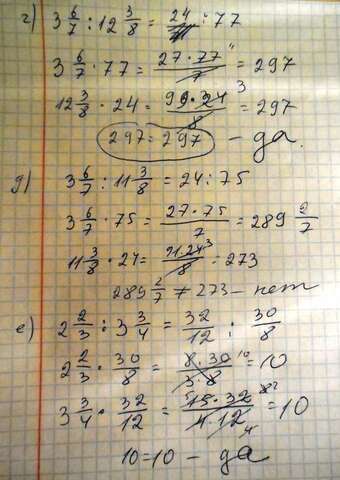 г) 3 6/7 : 12 3/8 = 24 : 77
3 6/7 · 77 = 27·77/7 = 297
12 3/8 · 24 = 99·24/8 3 = 297
297 = 297 – да.
д) 3 6/7 : 11 3/8 = 24 : 75
3 6/7 · 75 = 27·75/7 = 289 2/7
11 3/8 · 24 = 91·24/8 3 = 273
289 2/7 ≠ 273 – нет
е) 2 2/3 : 3 3/4 = 32/12 : 30/8
2 2/3 · 30/8 = 8·30/3·8 10 = 10
3 3/4 · 32/12 = 15·32/4·12 = 10
10 = 10 – да